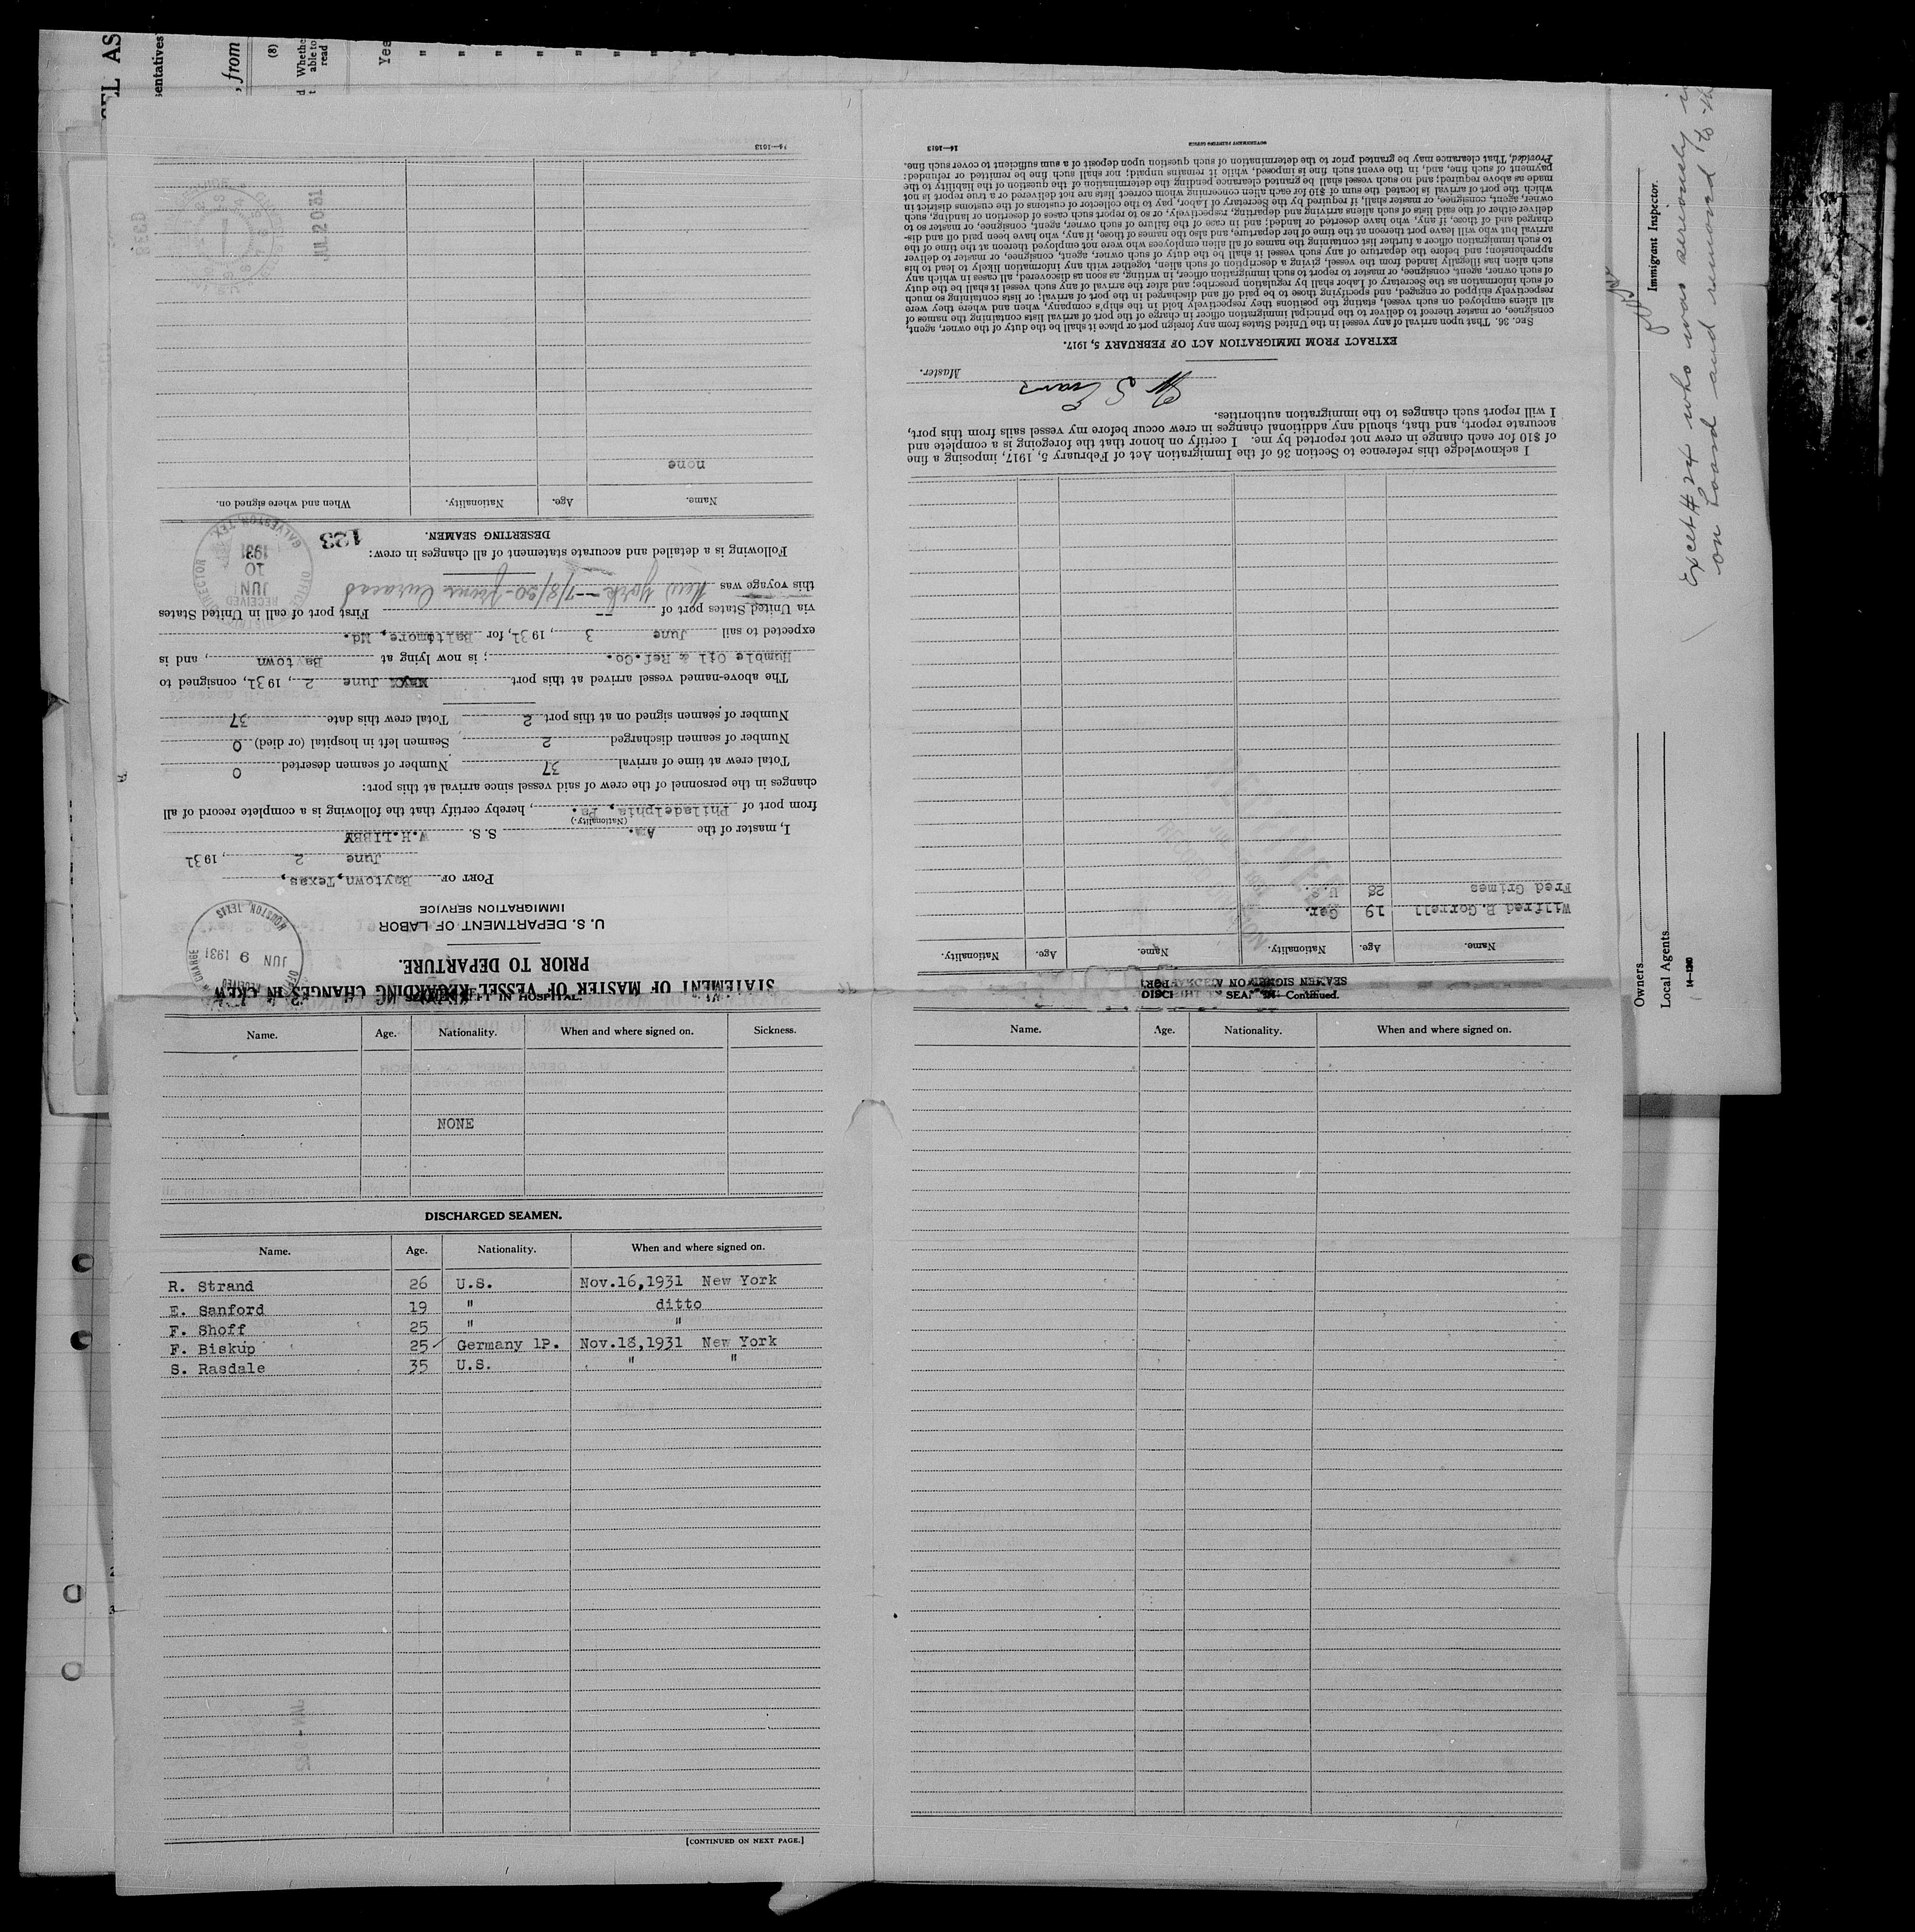 STATEMENT OF MASTER OF VESSEL REGARDING CHANGES IN CREW
PRIOR TO DEPARTURE.
U. S. DEPARTMENT OF LABOR
IMMIGRATION SERVICE
JUN 9 1931
HOUSTON, TEXAS
PORT OF Baytown, Texas,
June 2, 1931
I, master of the Am. S. S. W.H.LIBBY
(Nationality.)
from port of Philadelphia, Pa., hereby certify that the following is a complete record of all
changes in the personnel of the crew of said vessel since arrival at this port:
Total crew at time of arrival 37 Number of seamen deserted 0
Number of seamen discharged 2 Seamen left in hospital (or died) 0
Number of seamen signed on at this port 2 Total crew this date 37
The above-named vessel arrived at this port June 2, 1931, consigned to
Humble Oil & Ref.Co.; is now lying at Baytown, and is
expected to sail June 3, 1931, for Baltimore, Md.
via United States port of -- First port of call in United States
this voyage was New York - 7/8/30 - from Curacao
Following is a detailed and accurate statement of all changes in crew:
RECEIVED
JUN 10 1931
GALVESTON, TEX.
123
DESERTING SEAMEN.
Name. Age. Nationality. When and where signed on.
none
JUL 20 31
14—1613
Name. Age. Nationality. Name. Age. Nationality.
Wilfred B.Gorrell 19 Ger.
Fred Grimes 28 U.S.
I acknowledge this reference to Section 36 of the Immigration Act of February 5, 1917, imposing a fine
of $10 for each change in crew not reported by me. I certify on honor that the foregoing is a complete and
accurate report, and that, should any additional changes in crew occur before my vessel sails from this port,
I will report such changes to the immigration authorities.
W S Evans
Master.
EXTRACT FROM IMMIGRATION ACT OF FEBRUARY 5, 1917.
SEC. 36. That upon arrival of any vessel in the United States from any foreign port or place it shall be the duty of the owner, agent,
consignee, or master thereof to deliver to the principal immigration officer in charge of the port of arrival lists containing the names of
all aliens employed on such vessel, stating the positions they respectively hold in the ship's company, when and where they were
respectively shipped or engaged, and specifying those to be paid off and discharged in the port of arrival; or lists containing so much
of such information as the Secretary of Labor shall by regulation prescribe; and after the arrival of any such vessel it shall be the duty
of such owner, agent, consignee, or master to report to such immigration officer, in writing, as soon as discovered, all cases in which any
such alien has illegally landed from the vessel, giving a description of such alien, together with any information likely to lead to his
apprehension; and before the departure of any such vessel it shall be the duty of such owner, agent, consignee, or master to deliver
to such immigration officer a further list containing the names of all alien employees who were not employed thereon at the time of the
arrival but who will leave port thereon at the time of her departure, and also the names of those, if any, who have been paid off and dis-
charged and of those, if any, who have deserted or landed; and in case of the failure of such owner, agent, consignee, or master so to
deliver either of the said lists of such aliens arriving and departing, respectively, or so to report such cases of desertion or landing, such
owner, agent, consignee, or master, shall, if required by the Secretary of Labor, pay to the collector of customs of the customs district in
which the port of arrival is located the sum of $10 for each alien concerning whom correct lists are not delivered or a true report is not
made as above required; and no such vessel shall be granted clearance pending the determination of the question of the liability to the
payment of such fine, and, in the event such fine is imposed, while it remains unpaid; nor shall such fine be remitted or refunded:
Provided, That clearance may be granted prior to the determination of such question upon deposit of a sum sufficient to cover such fine.
GOVERNMENT PRINTING OFFICE
14—1613
Name. Age. Nationality. When and where signed on. Sickness.
NONE
DISCHARGED SEAMEN.
Name. Age. Nationality. When and where signed on.
R. Strand 26 U.S. Nov.16,1931 New York
E. Sanford 19 " ditto
F. Shoff 25 " "
F. Biskup 25 Germany 1P. Nov.18,1931 New York
S. Rasdale 35 U.S. " "
[CONTINUED ON NEXT PAGE.]
Name. Age. Nationality. When and where signed on.
, from
(8)
Yes
Immigrant Inspector.
Except #24 who was seriously
on board and removed to
Owners
Local Agents
14—1240